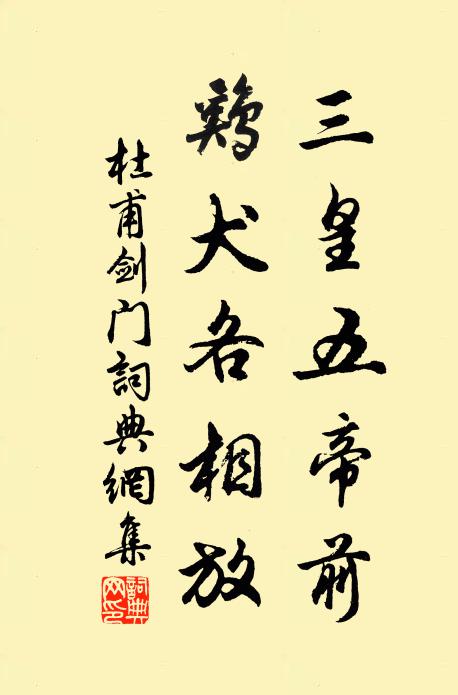 三皇五帝前
鷄犬各相放
杜甫剑门詞典網集
詞典網印